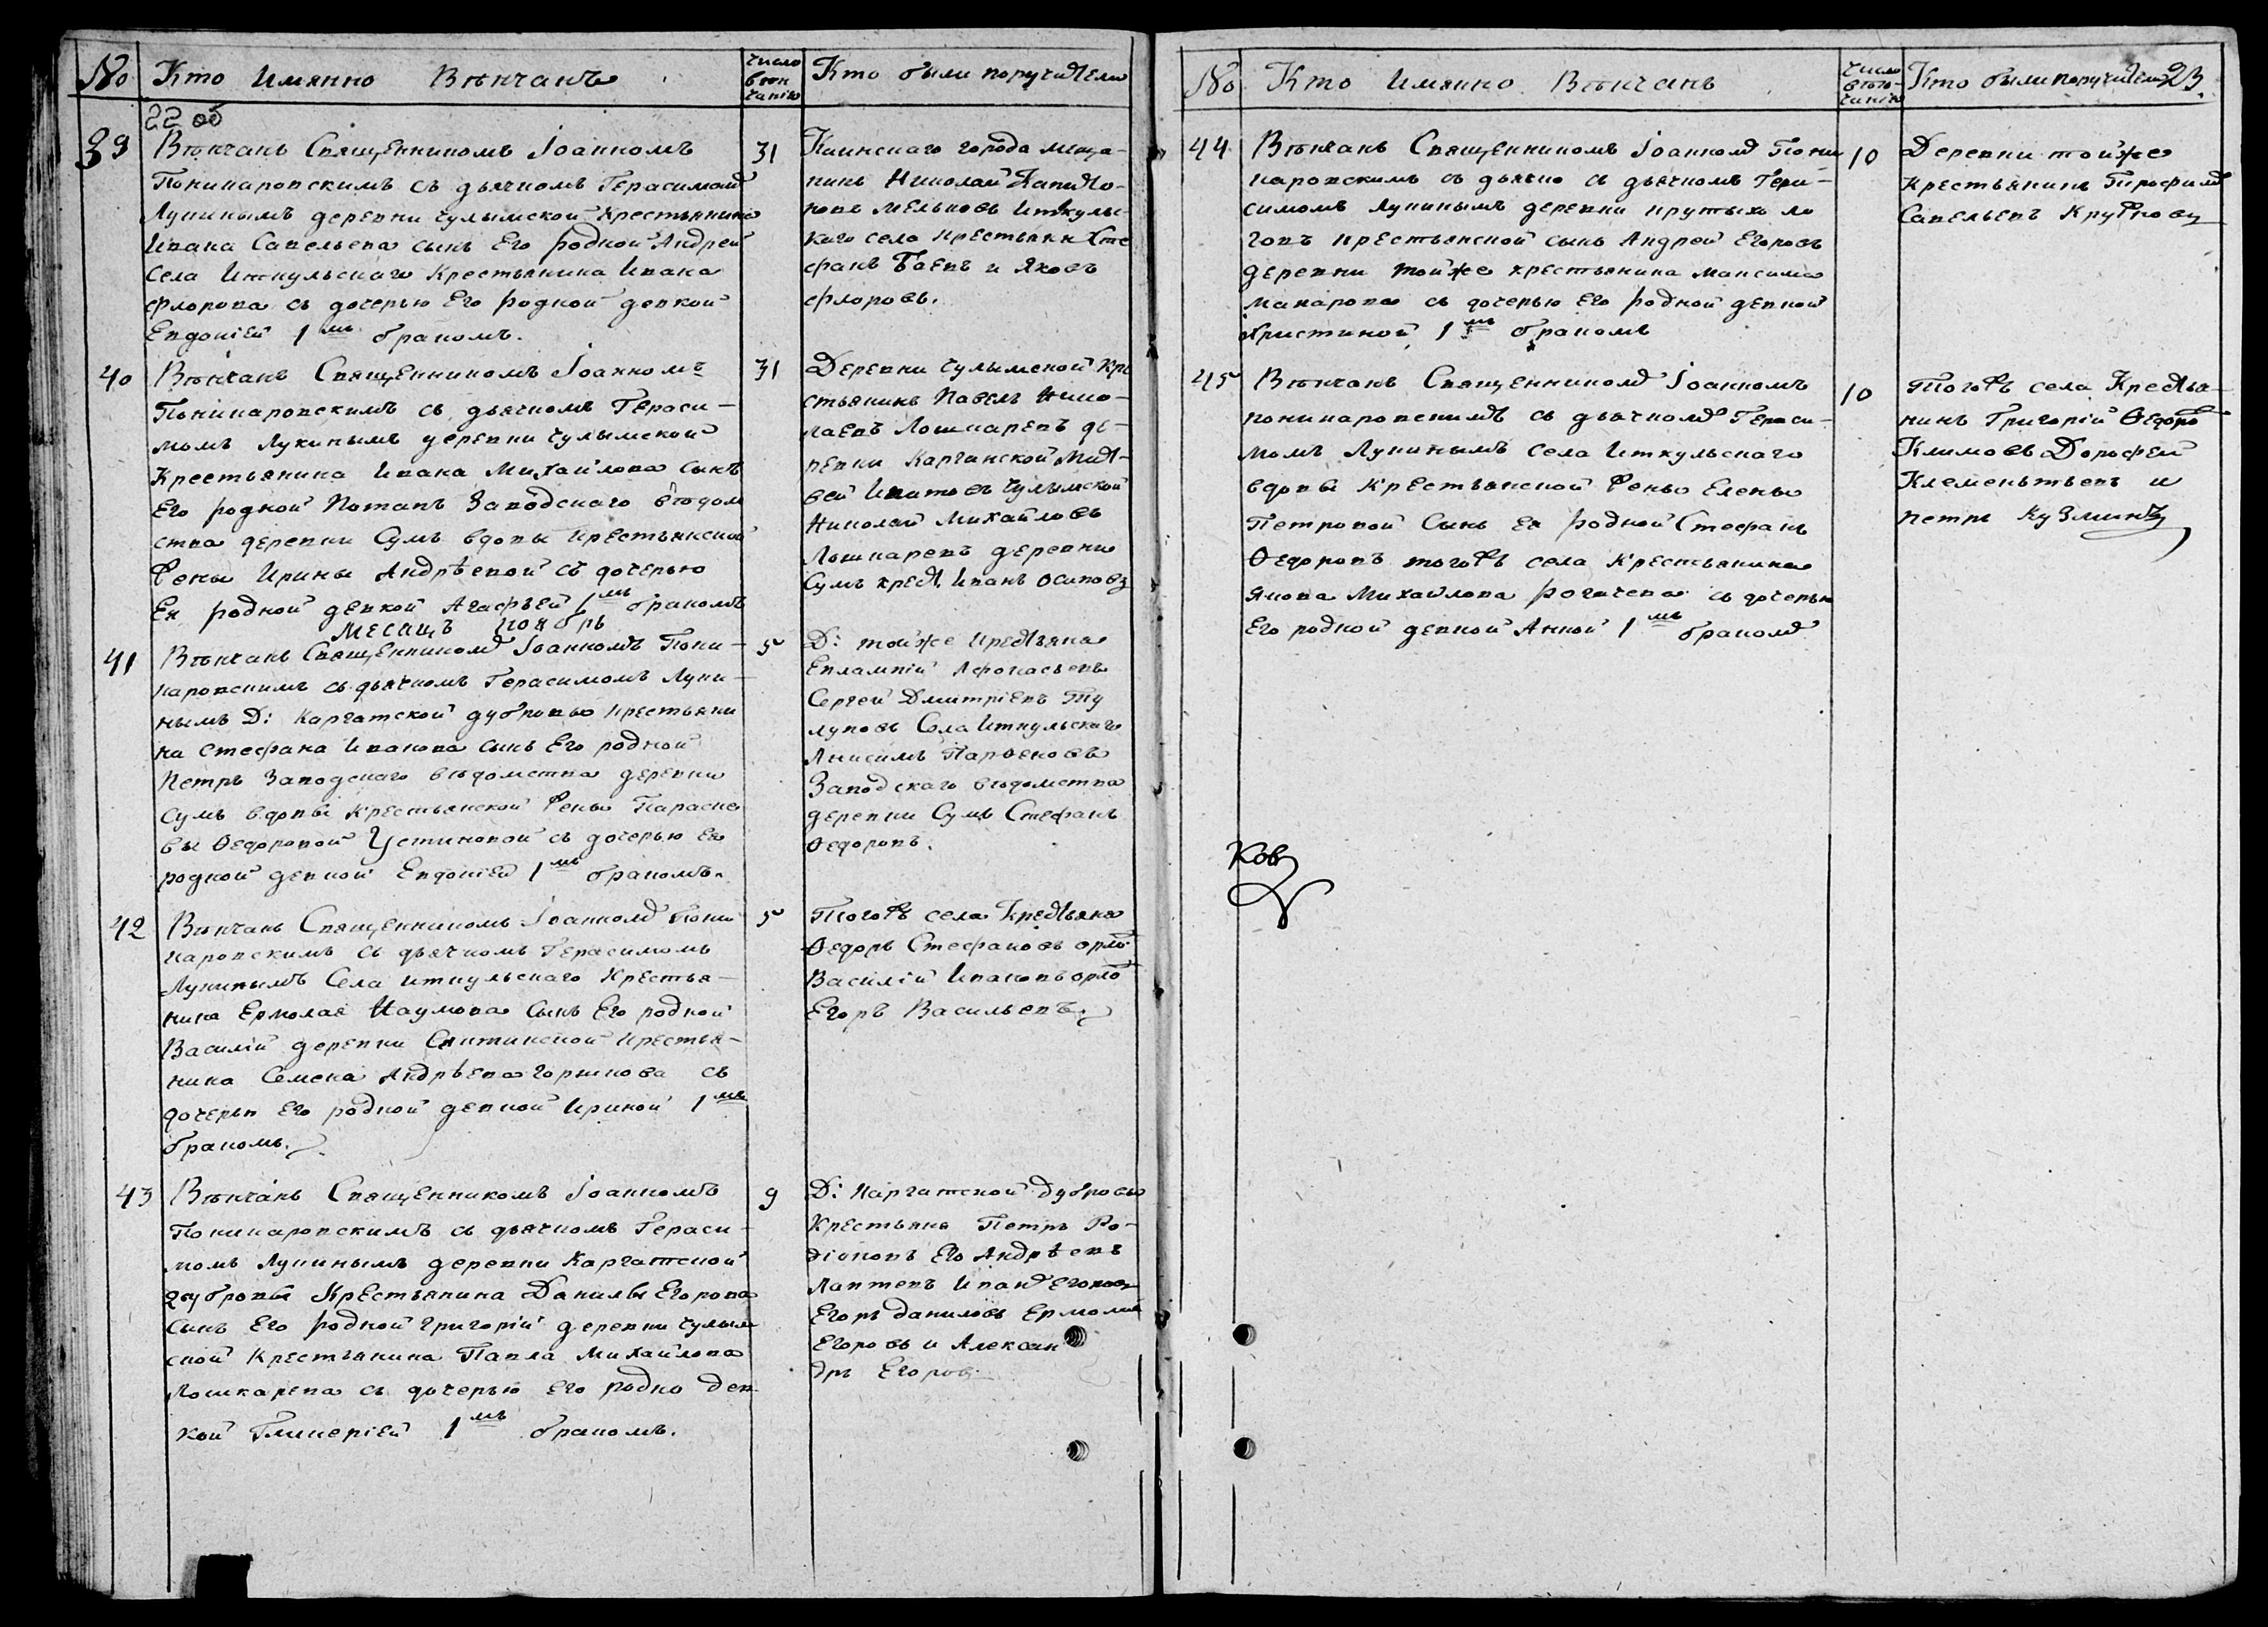 № Кто Имянно Вѣнчанъ
число вѣнчанія
Кто были поручители
22 об
39
Вѣнчанъ Священникомъ Іоанномъ
Поникаровскимъ съ дьячкомъ Герасимомъ
Лукинымъ деревни чулымской Крестьянина
Ивана Савельева сынъ Его родной Андрей
Села Иткульскаго Крестьянина Ивана
Флорова съ дочерью Его родной девкой
Евдокіей 1мъ бракомъ.
31
Каинскаго города меща-
нинъ Николай
Мельковъ Иткульс-
каго села крестьяни Сте
фанъ Баевъ и Яковъ
флоровъ.
40
Вѣнчанъ Священникомъ Іоанномъ
Поникаровскимъ съ дьячкомъ Гераси-
момъ Лукинымъ деревни чулымской
Крестьянина Ивана Михайлова сынъ
Его родной Потапъ Заводскаго вѣдом
ства деревни Сумъ вдовы крестьянской
Жены Ирины Андрѣевой съ дочерью
Ея родной девкой Агафьей 1мъ бракомъ
31
Деревни чулымской Кре
стьянинъ Павелъ Нико-
лаевъ Лошкаревъ де-
ревни Каргинской Мат-
вей Ипатовъ чулымской
Николай Михайловъ
Лошкаревъ деревни
Сумъ крест Иванъ осиповъ
Месяцъ ноябрь
41
Вѣнчанъ Священникомъ Іоанномъ Пони-
каровскимъ съ дьячкомъ Герасимомъ Луки-
нымъ Д: Каргатской дубровы крестьяни
на Стефана Иванова сынъ Его родной
Петръ Заводскаго вѣдомства деревни
Сумъ вдовы Крестьянской Жены Параске
вы Ѳедоровой Устиновой съ дочерью Ея
родной девкой Евдокіей 1мъ бракомъ.
5
Д: тойже крестьяна
Евлампій Афонасьевъ
Сергей Дмитріевъ Ту
луповъ Села Иткульскаго
Анисимъ Парѳеновъ
Заводскаго вѣдомства
деревни Сумъ Стефанъ
Ѳедоровъ.
42
Вѣнчанъ Священникомъ Іоанномъ Пони
каровскимъ съ дьячкомъ Герасимомъ
Лукинымъ Села иткульскаго Крестья-
нина Ермолая Наумова Сынъ Его родной
Василій деревни крестья-
нина Семена Андрѣева Горшкова съ
дочерью Его родной девкой Ириной 1мъ
бракомъ.
5
Тогожъ села Крестьяна
Ѳедоръ Стефановъ орло
Василій Ивановъ орло
Егоръ Васильевъ.
43
Вѣнчанъ Священникомъ Іоанномъ
Поникаровскимъ съ дьячкомъ Гераси-
момъ Лукинымъ деревни Каргатской
дубровы Крестьянина Данилы Егорова
Сынъ Его родной Григорій деревни чулым
ской Крестьянина Павла Михайлова
Лошкарева съ дочерью Его родно дев
кой Гликеріей 1мъ бракомъ.
9
Д: Каргатской Дубровы
Крестьяна Петръ Ро-
діоновъ Его Андрѣевъ
Лаптевъ Иванъ Егоровъ
Егоръ даниловъ Ермолай
Егоровъ и Алексан
дръ Егоров
№ Кто Имянно Вѣнчанъ
число вѣнчанія
Кто были поручители
23.
44
Вѣнчанъ Священникомъ Іоанномъ Пони
каровскимъ съ дьячко съ дьячкомъ Гера-
симомъ Лукинымъ деревни крутыхъ ло
говъ крестьянской сынъ Андрей Егоровъ
деревни тойже крестьянина Максима
Макарова съ дочерью Его родной девкой
Христиной 1мъ бракомъ
10
Деревни тойже
Крестьянинъ Трофимъ
Савельевъ
45
Вѣнчанъ Священникомъ Іоанномъ
поникаровскимъ съ дьячкомъ Гераси-
момъ Лукинымъ села Иткульскаго
вдовы Крестьянской Жены Елены
Петровой Сынъ Ея родной Стефанъ
Ѳедоровъ тогожъ села Крестьянина
Якова Михайлова Рогачева съ дочерью
Его родной девкой Анной 1мъ бракомъ
10
Тогожъ села Крестья-
нинъ Григорій Ѳедоро
Климовъ Дорофей
Клеменьтьевъ и
петръ Кузминъ
Ков